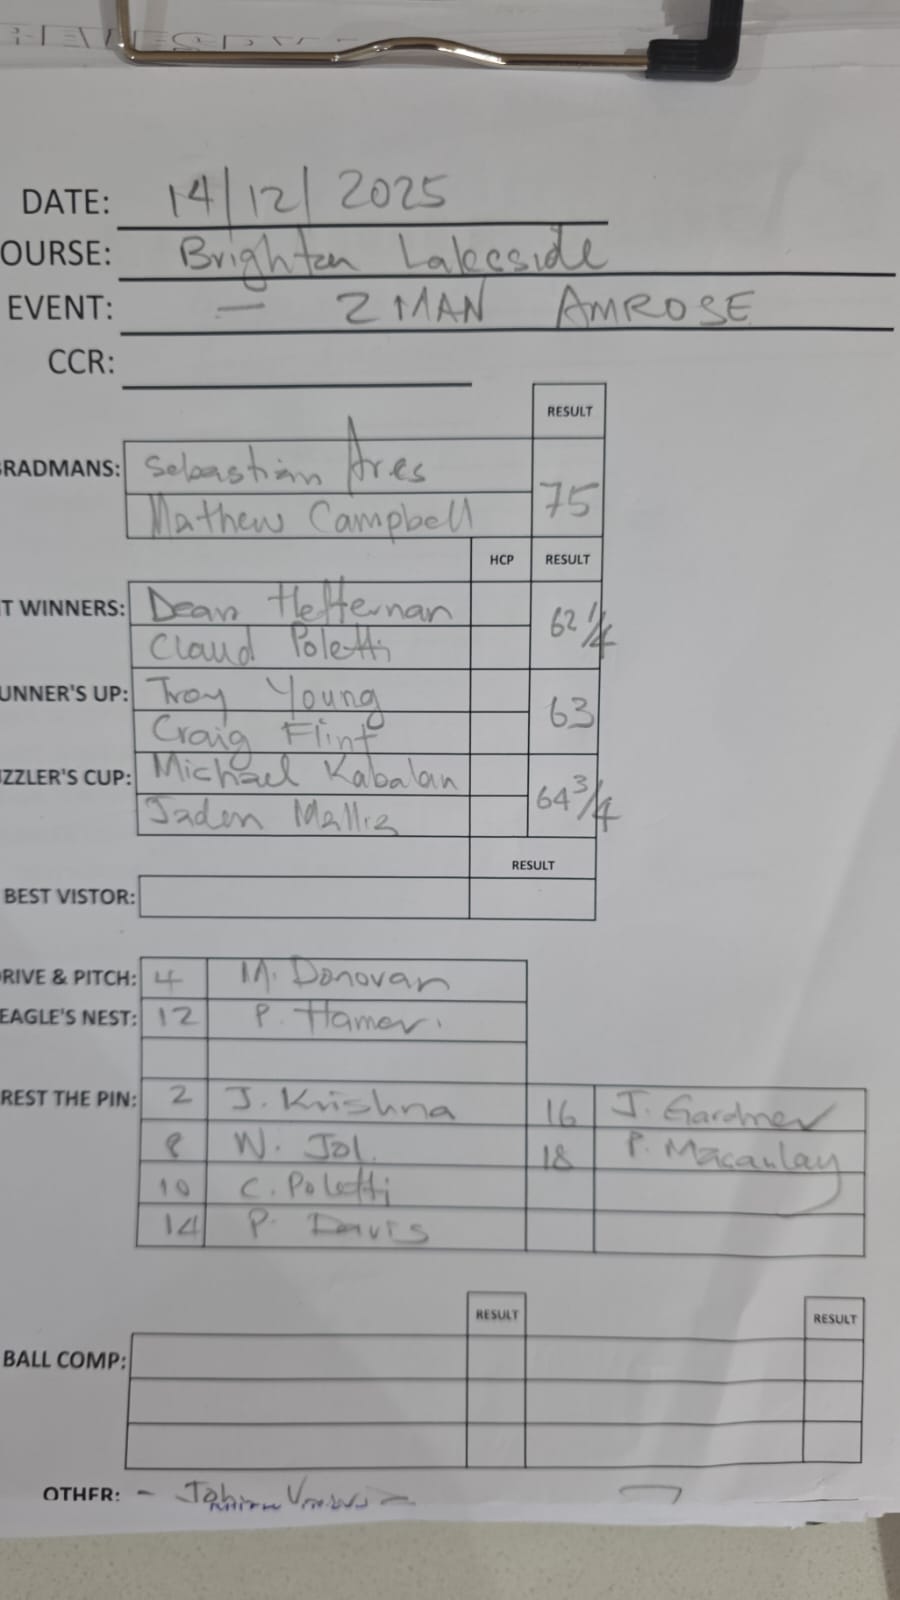 DATE: 14/12/2025
OURSE: Brighton Lakeside
EVENT: — 2 MAN AMROSE
CCR:
RESULT
RADMANS: Sebastian Ares
Mathew Campbell 75
HCP RESULT
T WINNERS: Dean Heffernan
Claud Poletti 62 1/4
UNNER'S UP: Troy Young
Craig Flint 63
ZZLER'S CUP: Michael Kabalan
Jaden Mallia 64 3/4
RESULT
BEST VISTOR:
RIVE & PITCH: 4 M. Donovan
EAGLE'S NEST: 12 P. Hamer.
REST THE PIN: 2 J. Krishna 16 J. Gardner
8 W. Jol. 18 P. Macaulay
10 C. Poletti
14 P. Davis
RESULT RESULT
BALL COMP:
OTHER: -